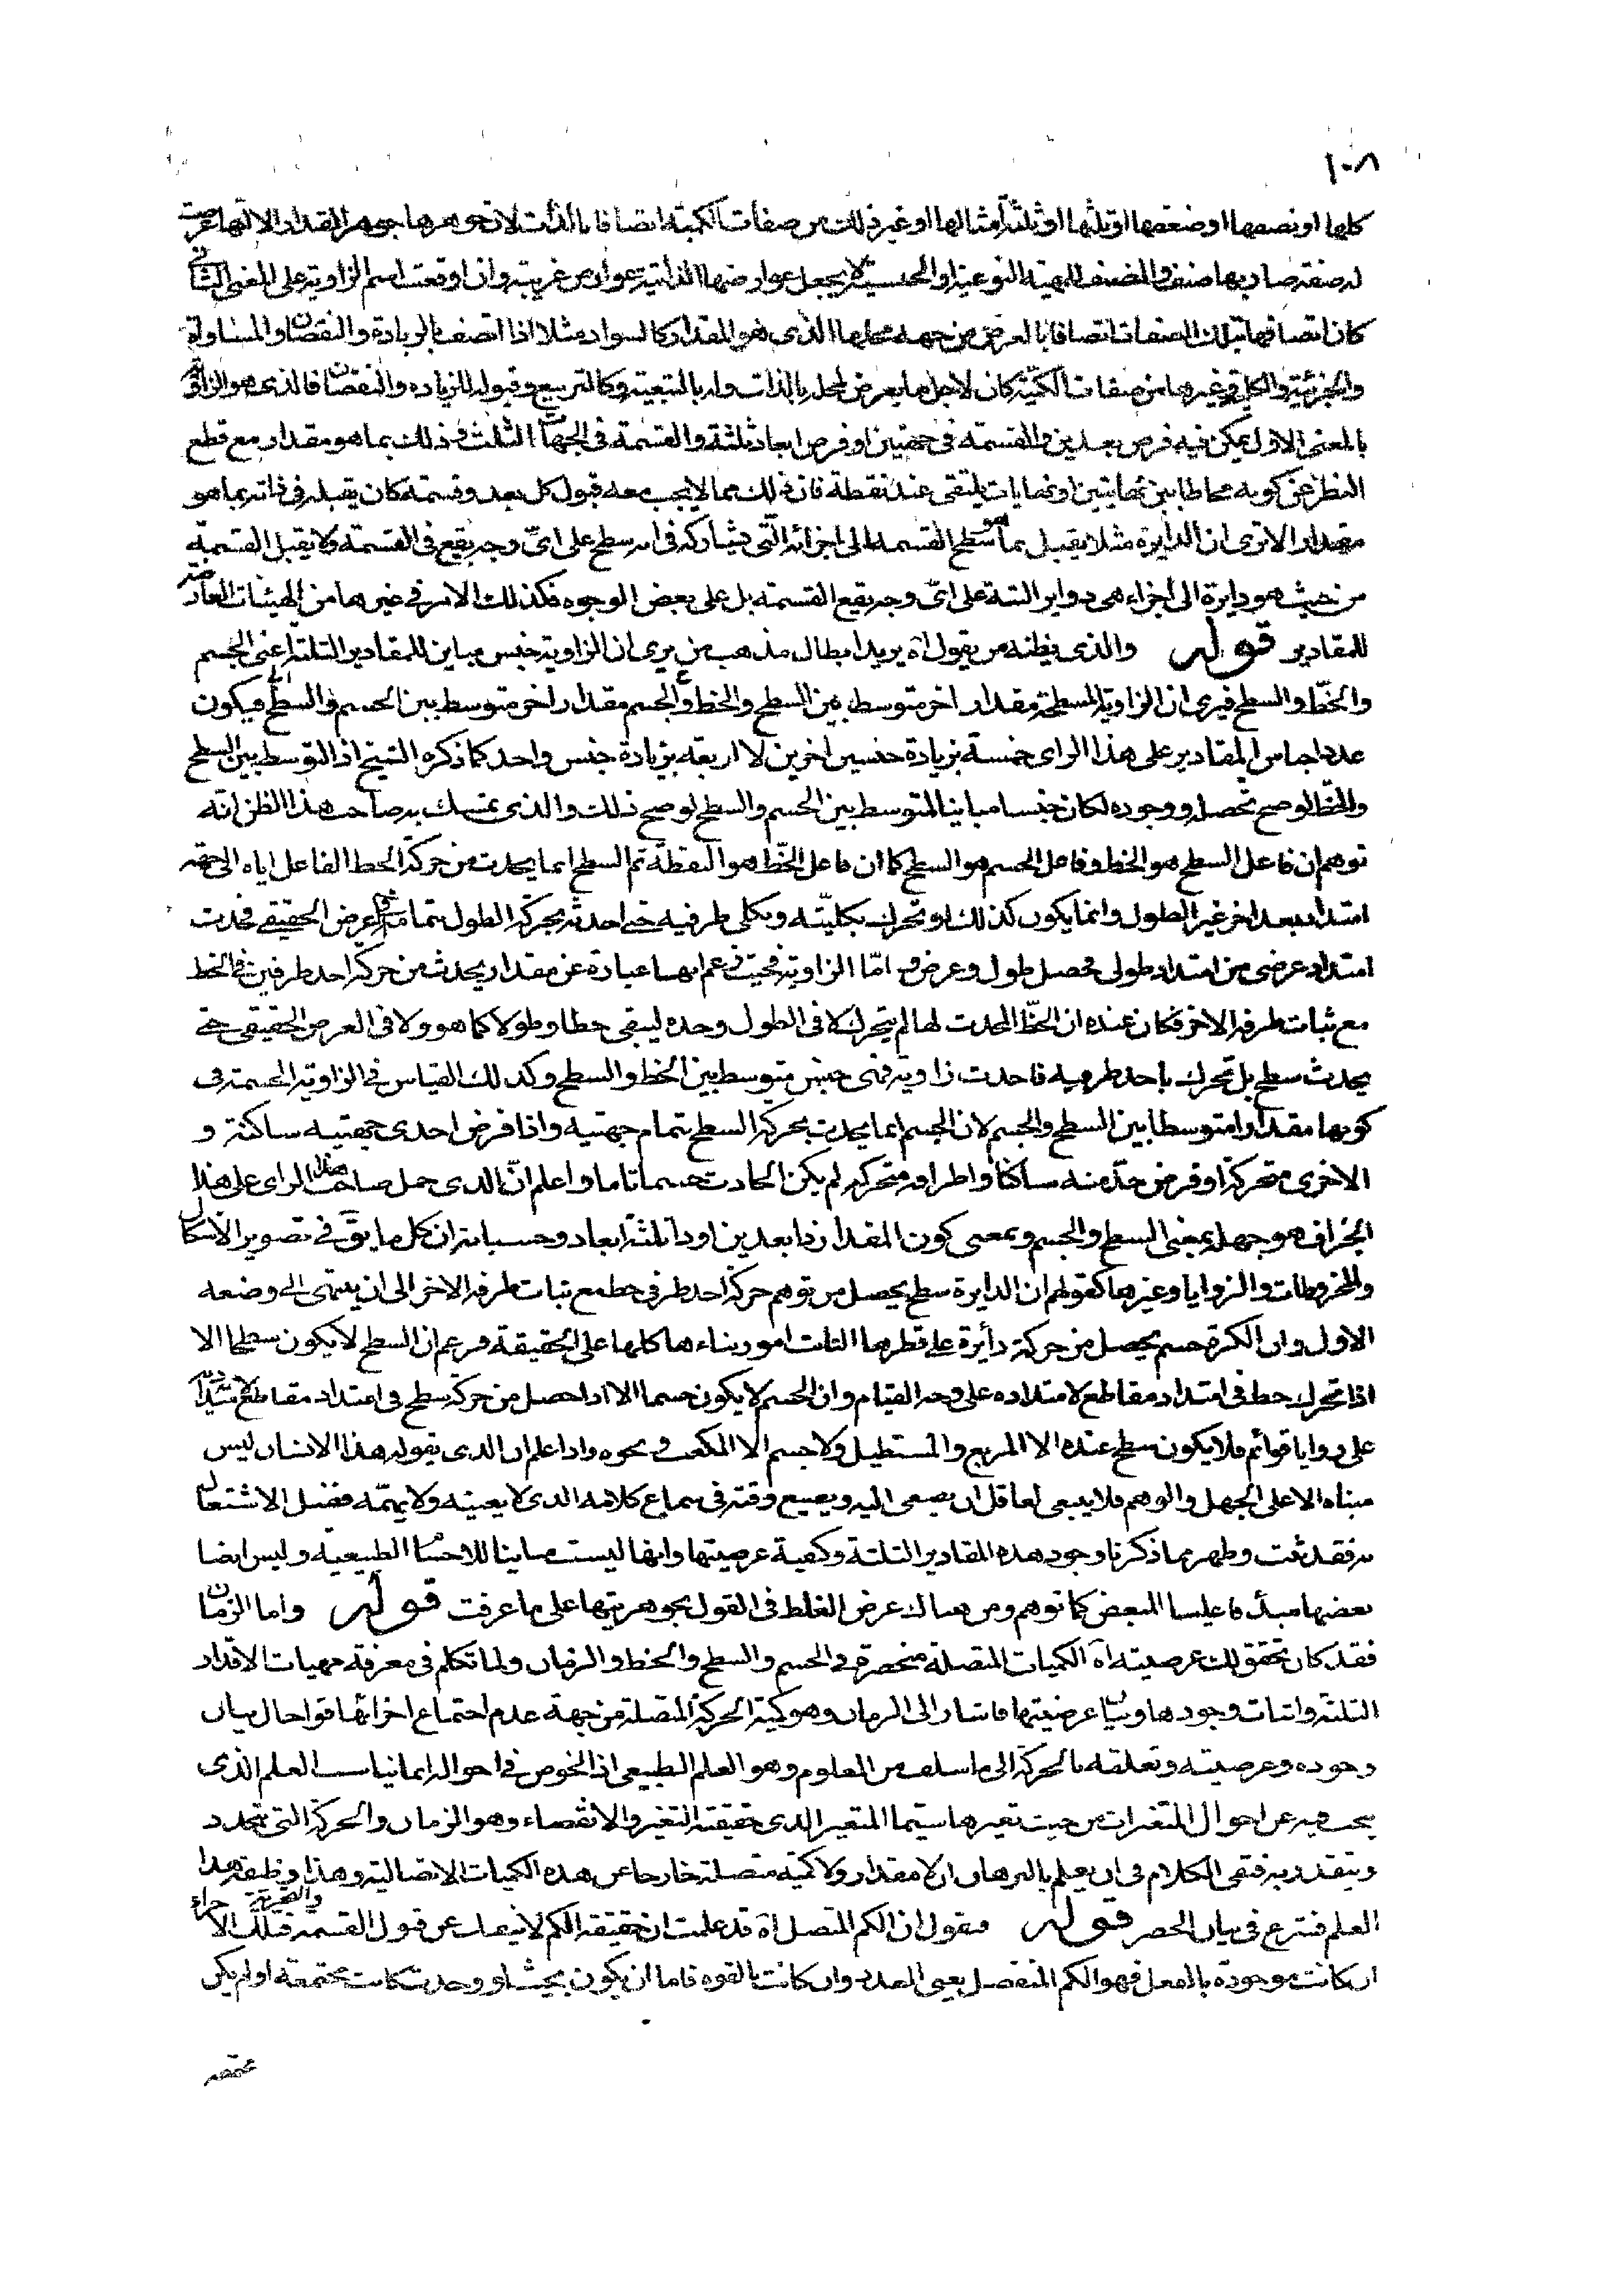 ١٠٨
كلها او نصفها او ضعفها او ثلثها او ثلثة أمثالها او غير ذلك من صفات الكمية اتصافا بالذات لان جوهرها جوهر المقدار الا انها عرضت
له صفة صار بها صنفا والمصنف للمهية النوعية او الجنسية لا يجعل عوارضها الذاتية عوارض غريبة وان اوقعت اسم الزاوية على المعنى الثانى
كان اتصافها بتلك الصفات اتصافا بالعرض من جهة محلها الذى هو المقدار كالسواد مثلا اذا اتصف بالزيادة والنقصان والمساواة
والجزئية والكلية وغيرها من صفات الكمية كان لاجل ما يعرض لمحله بالذات وله بالتبعية وكالتربيع وقبوله للزياده والنقصان فالذى هو الزاوية
بالمعنى الاول يمكن فيه فرض بعدين والقسمة فى جهتين او فرض ابعاد ثلثة والقسمة فى الجهات الثلث وذلك بما هو مقدار مع قطع
النظر عن كونه محاطا بين نهايتين او نهايات يلتقى عند نقطة فان ذلك مما لا يجب معه قبول كل بعد وقسمة كان يقبله فى ذاته بما هو
مقدار الا ترى ان الدايرة مثلا يقبل بما هو سطح القسمة الى اجزائه التى يشاركه فى انه سطح على اىّ وجه يقع فى القسمة ولا يقبل القسمة
من حيث هو دايرة الى أجزاء هى دواير البتة على اىّ وجه يقع القسمة بل على بعض الوجوه فكذلك الامر فى غيرها من الهيئات العارضة
للمقادير قوله والذى يظنه من يقول اه يريد ابطال مذهب من يرى ان الزاوية جنس مباين للمقادير الثلثة اعنى الجسم
والخطّ والسطح فيرى ان الزاوية المسطحة مقدار اخر متوسط بين السطح والخط والمجسم مقدار اخر متوسط بين الجسم والسطح فيكون
عدد اجناس المقادير على هذا الراى خمسة بزيادة جنسين اخرين لا اربعة بزيادة جنس واحد كما ذكره الشيخ اذ المتوسط بين السطح
والخط لو صح تحصله ووجوده لكان جنسا مباينا للمتوسط بين الجسم والسطح لو صح ذلك والذى تمسك به صاحب هذا الظن انه
توهم ان فاعل السطح هو الخط وفاعل الجسم هو السطح كما ان فاعل الخط هو النقطة ثم السطح انما يحدث من حركة الخط الفاعل اياه الى جهة
امتداد بعد اخر غير الطول وانما يكون كذلك لو تحرك بكليّته وبكلى طرفيه حتى احدثه بحركة الطول بتمامه فى العرض الحقيقى فحدث
امتداد عرضى من امتداد طولى فحصل طول وعرض و امّا الزاوية فحيث زعم انها عبارة عن مقدار يحدث من حركة احد طرفين فى الخط
مع ثبات طرفه الاخر فكان عنده ان الخطّ المحدث لها لم يتحرك لا فى الطول وحده ليبقى خطا وطولا كما هو ولا فى العرض الحقيقى حتى
يحدث سطح بل تحرك باحد طرفيه فاحدث زاوية فهى جنس متوسط بين الخط والسطح وكذلك القياس فى الزاوية المجسمة فى
كونها مقدارا متوسطا بين السطح والجسم لان الجسم انما يحدث بحركة السطح بتمام جهتيه واذا فرض احدى جهتيه ساكنة و
الاخرى متحركة او فرض حدّ منه ساكنا واطرافه متحركة لم يكن الحادث جسما تاما واعلم انّ الذى حمل صاحب هذا الراى على هذا
الجزاف هو جهله بمعنى السطح والجسم وبمعنى كون المقدار ذا بعدين او ذا ثلثة ابعاد وحسبانه ان كل ما يق فى تصوير الاشكال
والمخروطات والزوايا وغيرها كقولهم ان الدايرة سطح يحصل من توهم حركة احد طرفى خط مع ثبات طرفه الاخر الى ان ينتهى الى وضعه
الاول وان الكرة جسم يحصل من حركة دائرة على قطرها الثابت امور بناءها كلها على الحقيقة فزعم ان السطح لا يكون سطحا الا
اذا تحرك خط فى امتداد مقاطع لامتداده على وجه القيام وان الجسم لا يكون جسما الا اذا حصل من حركة سطح فى امتداد مقاطع
على زوايا قوائم فلا يكون سطح عنده الا المربع والمستطيل ولا جسم الا المكعب ونحوه واذا علم ان الذى يقوله هذا الانسان ليس
مبناه الا على الجهل والوهم فلا ينبغى لعاقل ان يصغى اليه ويضيع وقته فى سماع كلامه الذى لا يعينه ولا يهمّه فضل الاشتغال
به فقد ثبت وظهر مما ذكرنا وجود هذه المقادير الثلثة وكيفية عرضيتها وانها ليست مباينا للاجسام الطبيعية وليس ايضا
بعضها مبدء فاعليا للبعض كما توهم ومن هناك عرض الغلط فى القول بجوهريتها على ما عرفت قوله واما الزمان
فقد كان تحقق لك عرضيته اه الكميات المتصلة منحصرة فى الجسم والسطح والخط والزمان ولما تكلم فى معرفة مهيات الاقدار
الثلثة واثبات وجودها وبيان عرضيتها فاشار الى الزمان وهو كمية الحركة المتصلة من جهة عدم اجتماع اجزائها فواحال بيان
وجوده وعرضيته وتعلقه بالحركة الى ما سلف من العلوم وهو العلم الطبيعى اذ الخوض فى احواله انما يناسب العلم الذى
يبحث فيه عن احوال المتغيرات من حيث تغيرها سيّما المتغير الذى حقيقته التغير والانقضاء وهو الزمان والحركة التى تتجدد
ويتقدر به فبقى الكلام فى ان يعلم بالبرهان ان لا مقدار ولا كمية متصلة خارجا عن هذه الكميات الاتصالية وهذا وظيفة هذا
العلم فشرع فى بيان الحصر قوله فنقول ان الكم المتصل اه قد علمت ان حقيقة الكم لا ينفك عن قبول القسمة والتجزية فتلك الاجزاء
ان كانت موجودة بالفعل فهو الكم المنفصل يعنى العدد وان كانت بالقوه فاما ان يكون بحيث لو وجدت كانت مجتمعة او لم يكن
مجتمعة